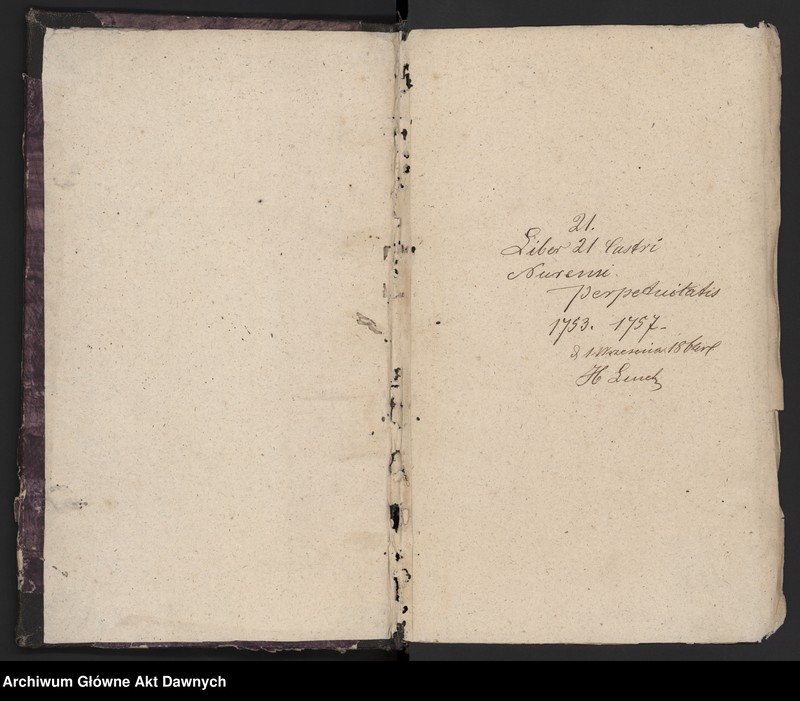 21.
Liber 21 Castri
Nurensi.
perpetuitatis
1753. 1757.
d 1 Września
H Lench
Archiwum Główne Akt Dawnych